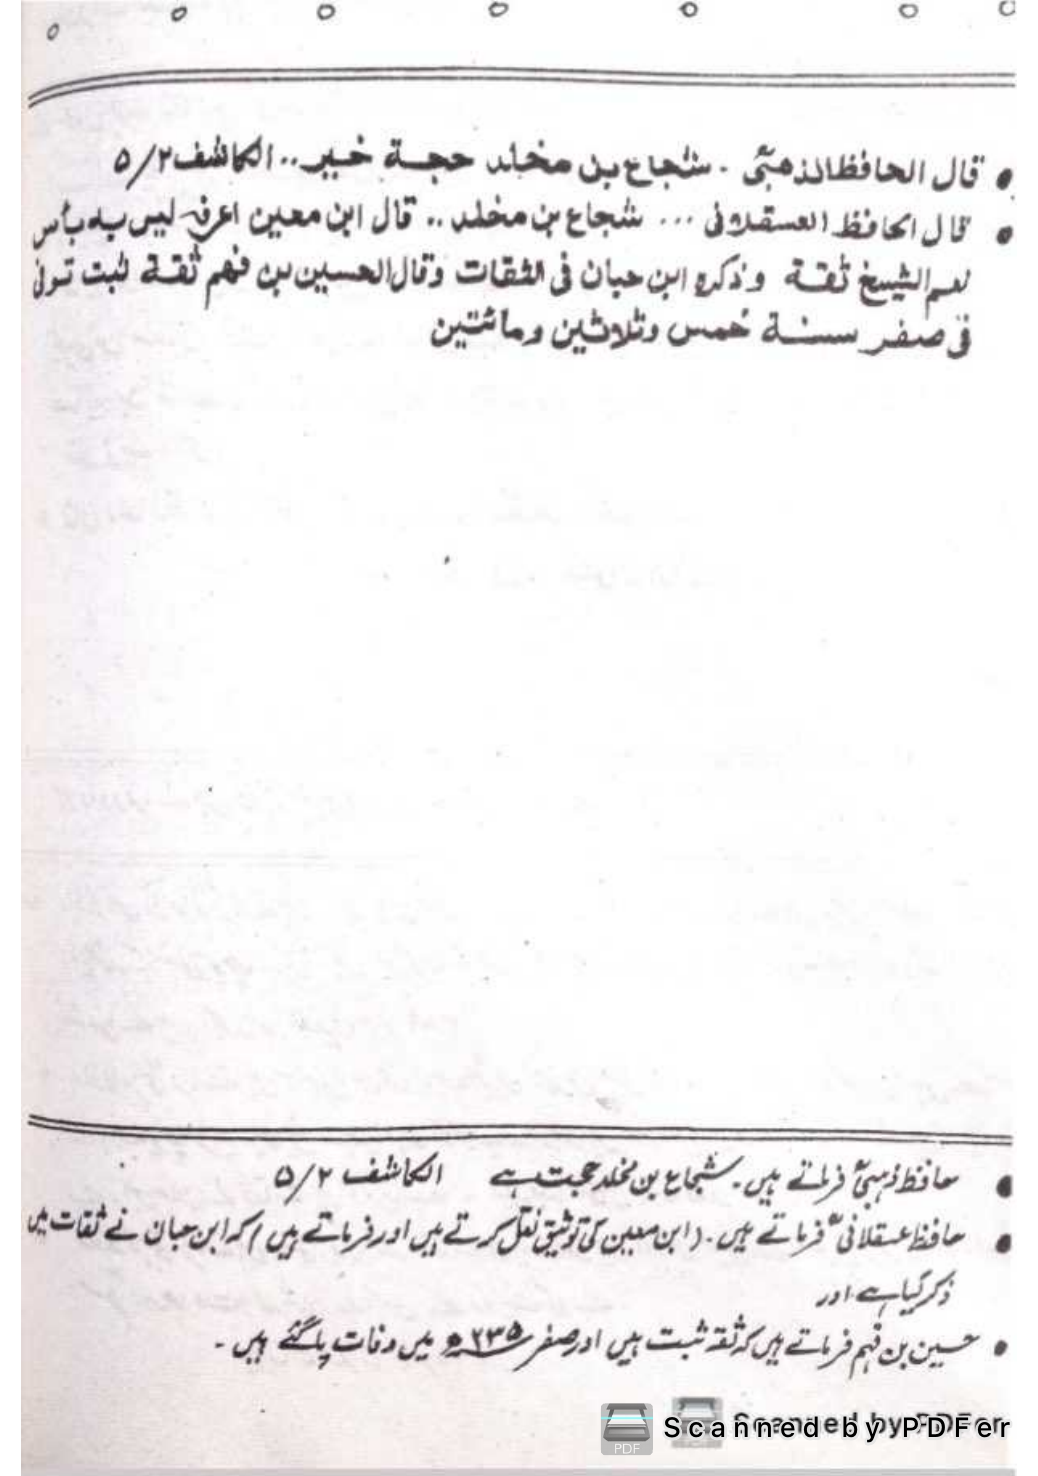 ● قال الحافظ الذهبیؒ - شجاع بن مخلد حجة خیر .. الکاشف ۲/۵
● قال الحافظ العسقلانی ... شجاع بن مخلد .. قال ابن معین اعرفه لیس به بأس
نعم الشیخ ثقة وذکره ابن حبان فی الثقات وقال الحسین بن فهم ثقة ثبت توفی
فی صفر سنة خمس وثلاثین ومائتین
● حافظ ذہبیؒ فرماتے ہیں۔ شجاع بن مخلد حجت ہے الکاشف ۲/۵
● حافظ عسقلانیؒ فرماتے ہیں۔ (ابن معین کی توثیق نقل کرتے ہیں اور فرماتے ہیں) کہ ابن حبان نے ثقات میں
ذکر کیا ہے اور
● حسین بن فہم فرماتے ہیں کہ ثقہ ثبت ہیں اور صفر ۲۳۵ھ میں وفات پا گئے ہیں۔
PDF Scanned by PDFer
Scanned by PDFer